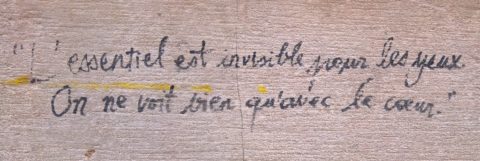 "L'essentiel est invisible pour les yeux
On ne voit bien qu'avec le cœur."